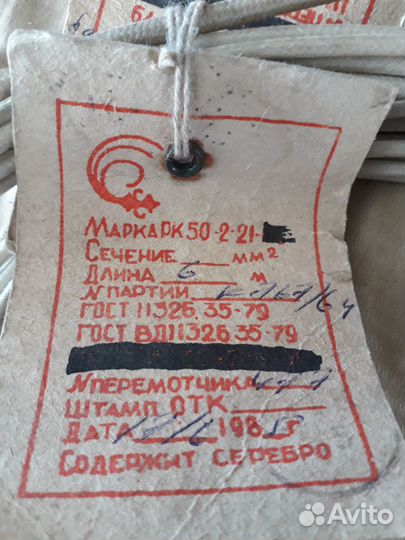 МАРКА РК 50-2-21-
СЕЧЕНИЕ ММ²
ДЛИНА 6 М
N ПАРТИИ
ГОСТ 11326.35-79
ГОСТ ВД 11326.35-79
N ПЕРЕМОТЧИКА
ШТАМП ОТК
ДАТА 198
СОДЕРЖИТ СЕРЕБРО
Avito